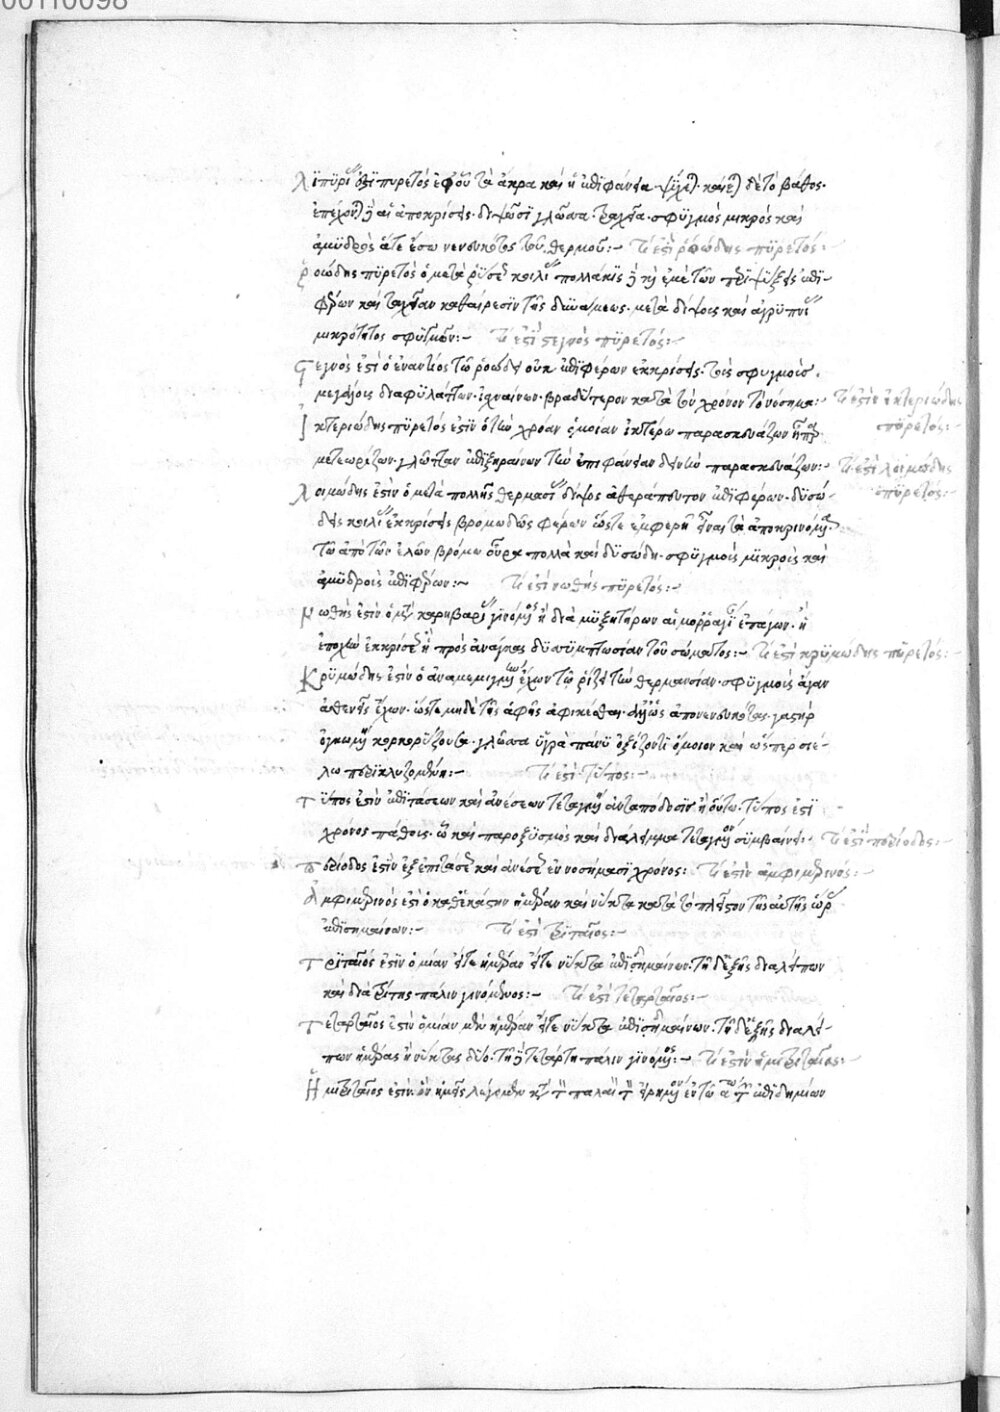 00110098
λιπυρίας ἐστὶ πυρετὸς ἐφ οὗ τὰ ἄκρα καὶ ἡ ἐπιφάνεια ψύχεται· καίεται δὲ τὸ βάθος·
ἐπέχονται δὲ αἱ ἀποκρίσεις· διψῶσι γλῶσσα τραχεῖα· σφυγμὸς μικρὸς καὶ
ἀμυδρὸς ἅτε ἔσω νενευκότος τοῦ θερμοῦ:~ τί ἐστὶ ῥοώδης πυρετός:
ῥοώδης πυρετὸς ὁ μετὰ ῥύσεως κοιλίας πολλάκις δὲ καὶ ἐμέτων περιψύξεις ἐπι-
φέρων καὶ ταχεῖαν καθαίρεσιν τῆς δυνάμεως· μετὰ δίψους καὶ ἀγρυπνίας
μικρότητος σφυγμῶν:~ τί ἐστὶ στεγνὸς πυρετός:~
στεγνὸς ἐστὶ ὁ ἐναντίος τῷ ῥοώδει οὐκ ἐπιφέρων ἐκκρίσεις· τοῖς σφυγμοῖς
μεγάλοις διαφυλάττων· ἰσχναίνων· βραδύτερον κατὰ τὸν χρόνον τὸ νόσημα:~ τί ἐστὶν ἰκτεριώδης
πυρετός:~
ἰκτεριώδης πυρετός ἐστὶν ὁ τὴν χρόαν ὁμοίαν ἰκτέρω παρασκευάζων ἧπαρ
μετεωρίζων· γλῶτταν ἐπιξηραίνων τὴν ἐπιφάνειαν δεινὴν παρασκευάζων:~ τί ἐστὶ λοιμώδης
πυρετός:~
λοιμώδης ἐστὶν ὁ μετὰ πολλῆς θερμασίας δίψος ἀθεράπευτον ἐπιφέρων· δυσώ-
δεις κοιλίας ἐκκρίσεις βρομώδως φέρων ὥστε ἐμφερῆ εἶναι τὰ ἀποκρινόμενα
τῶ ἀπὸ τῶν ἑλῶν βρόμω οὖρα πολλὰ καὶ δυσώδη· σφυγμοὺς μικροὺς καὶ
ἀμυδροὺς ἐπιφέρων:~ τί ἐστὶ νωθὴς πυρετός:~
νωθὴς ἐστὶν ὁ μετὰ καρηβαρίας γινόμενος ἢ διὰ μυξητήρων αἱμορραγίαν ἐπάγων· ἢ
ἐποχὴν ἐκκρίσεως ἢ πρὸς ἀνάγκας δυσσυμπτωσίαν τοῦ σώματος:~ τί ἐστὶ κρυμώδης πυρετός:~
κρυμώδης ἐστὶν ὁ ἀναμεμιγμένην ἔχων τῷ ῥίγει τὴν θερμασίαν· σφυγμοὺς ἄγαν
ἀσθενεῖς ἔχων· ὥστε μηδὲ τῆς ἁφῆς ἀφικέσθαι· ἀπονενευκότας· γαστὴρ
ὀγκωμένη κορκορύζουσα· γλῶσσα ὑγρὰ πάνυ ὀξίζοντι ὅμοιον καὶ ὥσπερ σιέ-
λω περικλυζομένη:~ τί ἐστὶ τύπος:~
τύπος ἐστὶν ἐπιτάσεων καὶ ἀνέσεων τεταγμένη ἀνταπόδοσις ἢ οὕτω· τύπος ἐστὶ
χρόνος πάθους· ὧ καὶ παροξυσμὸς καὶ διάλειμμα τεταγμένον συμβαίνει· τί ἐστὶ περίοδος:~
περίοδος ἐστὶν ἐξ ἐπιτάσεως καὶ ἀνέσεως ἐν νοσήμασι χρόνος: τί ἐστὶν ἀμφιμερινός:~
ἀμφιμερινὸς ἐστὶ ὁ καθ ἑκάστην ἡμέραν καὶ νύκτα κατὰ τὸ πλεῖστον τῆς αὐτῆς ὥρας
ἐπισημαίνων:~ τί ἐστὶ τριταῖος:~
τριταῖος ἐστὶν ὁ μίαν εἴτε ἡμέραν εἴτε νύκτα ἐπισημαίνων· τῆ δὲ ἑξῆς διαλείπων
καὶ διὰ τρίτης πάλιν γινόμενος:~ τί ἐστὶ τεταρταῖος:~
τεταρταῖος ἐστὶν ὁ μίαν μὲν ἡμέραν εἴτε νύκτα ἐπισημαίνων· τῆ δὲ ἑξῆς διαλεί-
πων ἡμέρας ἢ νύκτας δύο· τῆ δὲ τετάρτη πάλιν γινόμενος:~ τί ἐστὶν ἡμιτριταῖος:~
ἡμιτριταῖος ἐστὶν· ὃν ἡμεῖς λέγομεν κατὰ τὴν παλαιὰν εἰρημένον ἐν τῷ ἐπιδημίων